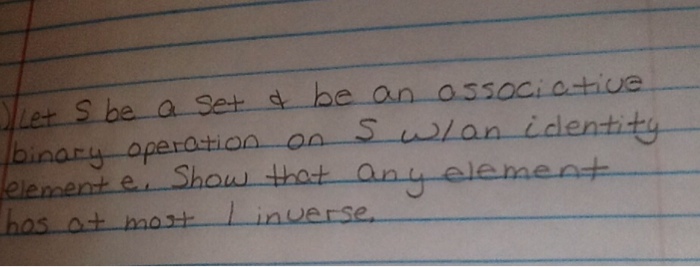 ) Let S be a set & be an associative
binary operation on S w/an identity
element e. Show that any element
has at most 1 inverse.